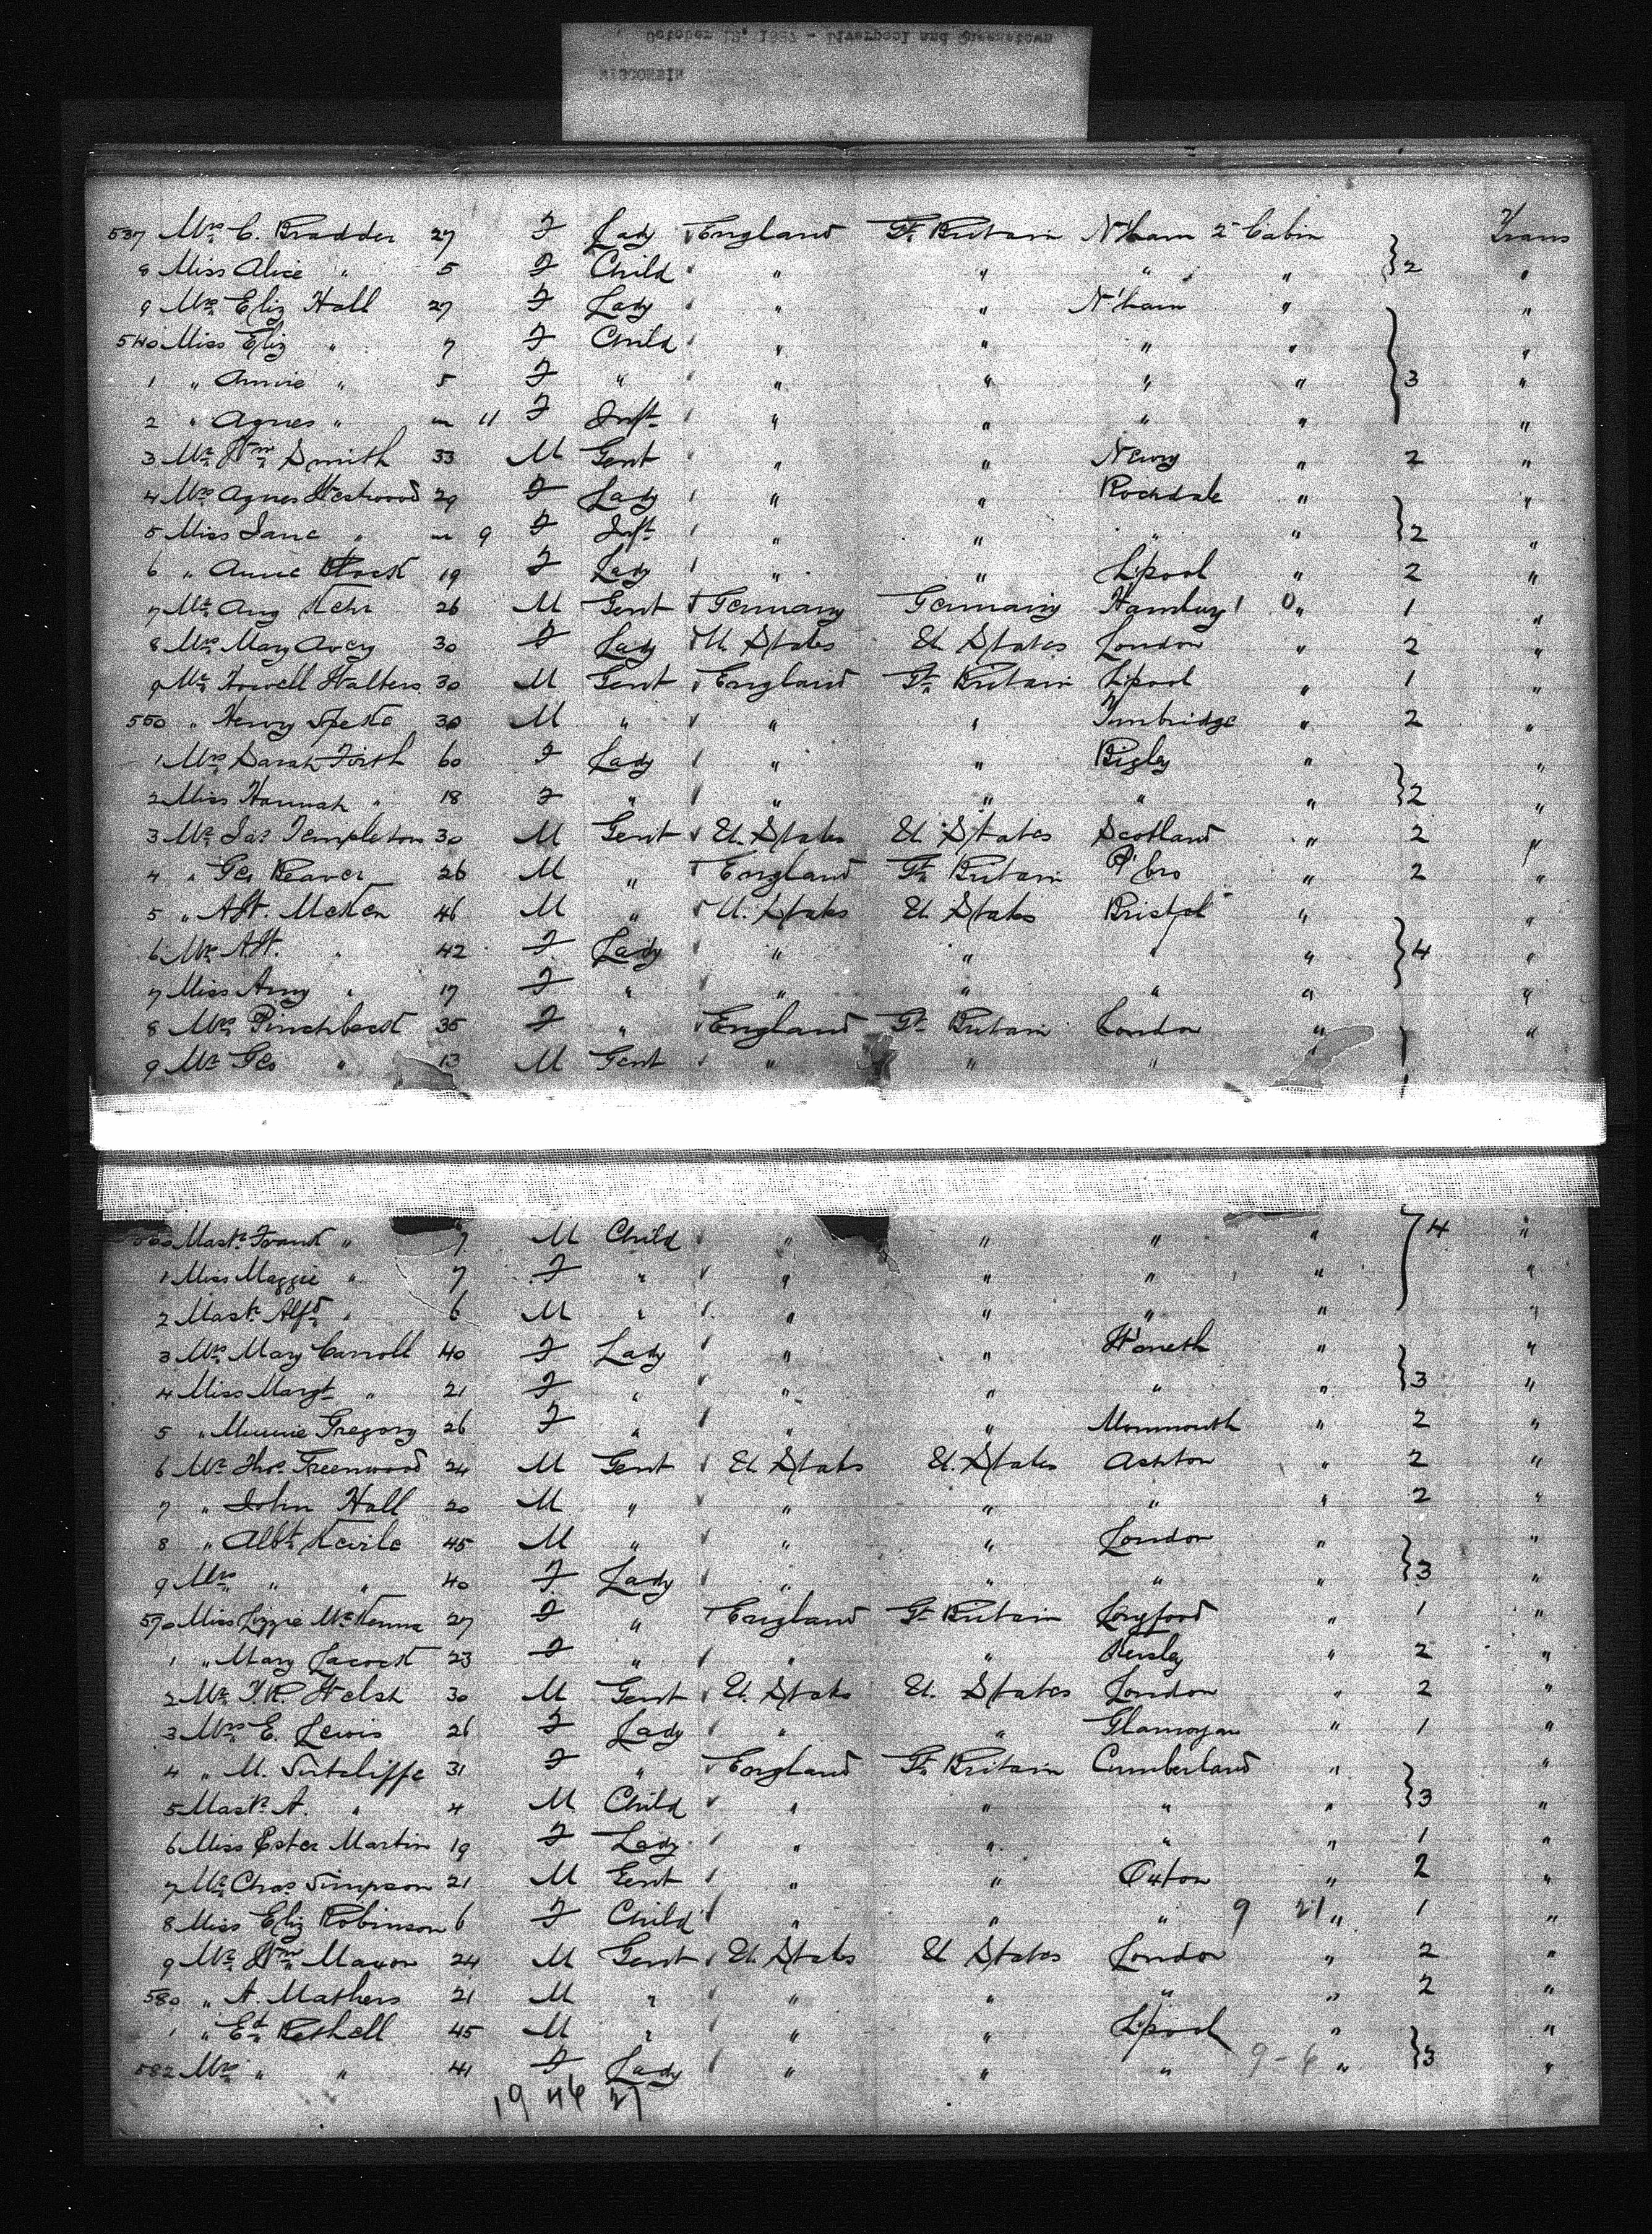 October 13, 1887 - Liverpool and Queenstown
WISCONSIN
537 Mrs C. Bradder 27 F Lady England Gt. Britain N'ham 2d Cabin Trans
8 Miss Alice " 5 F Child " " " " } 2 "
9 Mrs Eliz Hall 27 F Lady " " N'ham " "
540 Miss Eliz " 7 F Child " " " " "
1 " Annie " 5 F " " " " " } 3 "
2 " Agnes " 11 F Inft " " " " "
3 Mr Wm Smith 33 M Gent " " Newry " 2 "
4 Mrs Agnes Westwood 29 F Lady " " Rochdale " "
5 Miss Jane " 9 F Inft " " " " } 2 "
6 " Annie 19 F Lady " " L'pool " 2 "
7 Mr Aug Kehr 26 M Gent Germany Germany Hamburg " 1 "
8 Mrs Mary Avey 30 F Lady U. States U. States London " 2 "
9 Mr Howell Walters 30 M Gent England Gt. Britain L'pool " 1 "
550 " Henry Speke 30 M " " " Tunbridge " 2 "
1 Mrs Sarah Firth 60 F Lady " " Bigley " "
2 Miss Hannah " 18 F " " " " " } 2 "
3 Mr Jas Templeton 30 M Gent U. States U. States Scotland " 2 "
4 " Geo Beaver 26 M " England Gt. Britain P'bro " 2 "
5 " Alf. 46 M " U. States U. States Bristol " "
6 Mrs Alf. " 42 F Lady " " " " } 4 "
7 Miss Amy " 17 F " " " " " "
8 Mrs Pinchback 35 F " England Gt. Britain London " "
9 Mr Geo " 13 M Gent " " "
560 Mastr Frank " 9 M Child " " " " } 4 "
1 Miss Maggie " 7 F " " " " " "
2 Mastr Alfd " 6 M " " " " " "
3 Mrs Mary Carroll 40 F Lady " " " "
4 Miss Margt " 21 F " " " " " } 3 "
5 " Minnie Gregory 26 F " " " Monmouth " 2 "
6 Mr Thos Greenwood 24 M Gent U. States U. States Ashton " 2 "
7 " John Hall 20 M " " " " " 2 "
8 " Albt Kevile 45 M " " " London " "
9 Mrs " " 40 F Lady " " " " } 3 "
570 Miss Lizzie McKenna 27 F " England Gt. Britain Longford " 1 "
1 " Mary Lacock 23 F " " " Kersley " 2 "
2 Mr T.R. Welsh 30 M Gent U. States U. States London " 2 "
3 Mrs E. Lewis 26 F Lady " " Glamorgan " 1 "
4 " M. Sutcliffe 31 F " England Gt. Britain Cumberland " "
5 Mastr A. " 4 M Child " " " " } 3 "
6 Miss Ester Martin 19 F Lady " " " " 1 "
7 Mr Chas Simpson 21 M Gent " " Oxton " 2 "
8 Miss Eliz Robinson 6 F Child " " " 9 21 " 1 "
9 Mr Wm Maxon 24 M Gent U. States U. States London " 2 "
580 " A. Mathers 21 M " " " " " 2 "
1 " Ed Bethell 45 M " " " L'pool " "
582 Mrs " " 41 F Lady " " " 9-6 " } 3 "
19 46 27